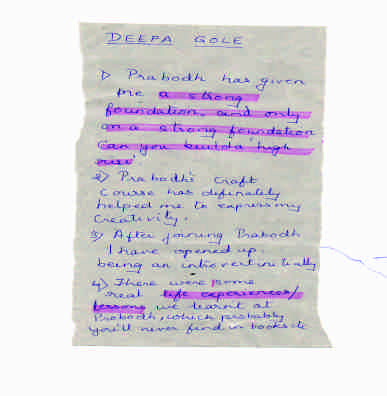 DEEPA GOLE
1) Prabodh has given
me a strong
foundation, and only
on a strong foundation
can you build a 'high
rise'
2) Prabodh's Craft
Course has definately
helped me to express my
Creativity.
3) After joining Prabodh
I have opened up
being an introvert initially
4) There were some
real life experiences/
lessons we learnt at
Prabodh, which probably
you'll never find in books etc